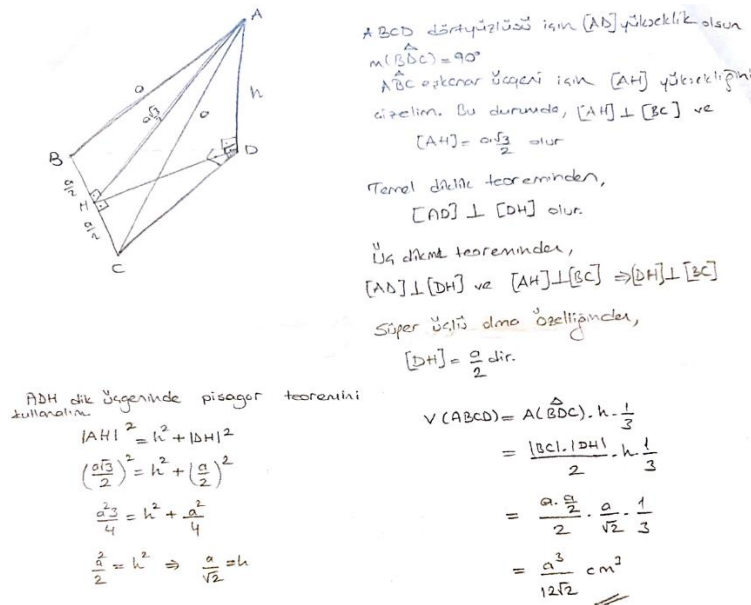 A
a
a√3
a
h
B
D
a/2
H
a/2
C
ABCD dörtyüzlüsü için [AD] yükseklik olsun
m(BD̂C) = 90°
ABC eşkenar üçgeni için [AH] yüksekliğini
çizelim. Bu durumda, [AH] ⊥ [BC] ve
[AH] = a√3/2 olur
Temel diklik teoreminden,
[AD] ⊥ [DH] olur.
Üç dikme teoreminden,
[AD] ⊥ [DH] ve [AH] ⊥ [BC] ⇒ [DH] ⊥ [BC]
Süper üçlü olma özelliğinden,
[DH] = a/2 dir.
ADH dik üçgeninde pisagor teoremini
kullanalım
|AH|² = h² + |DH|²
(a√3/2)² = h² + (a/2)²
a²3/4 = h² + a²/4
a²/2 = h² ⇒ a/√2 = h
V(ABCD) = A(BDC) . h . 1/3
= |BC| . |DH| / 2 . h . 1/3
= a . a/2 / 2 . a/√2 . 1/3
= a³/12√2 cm³